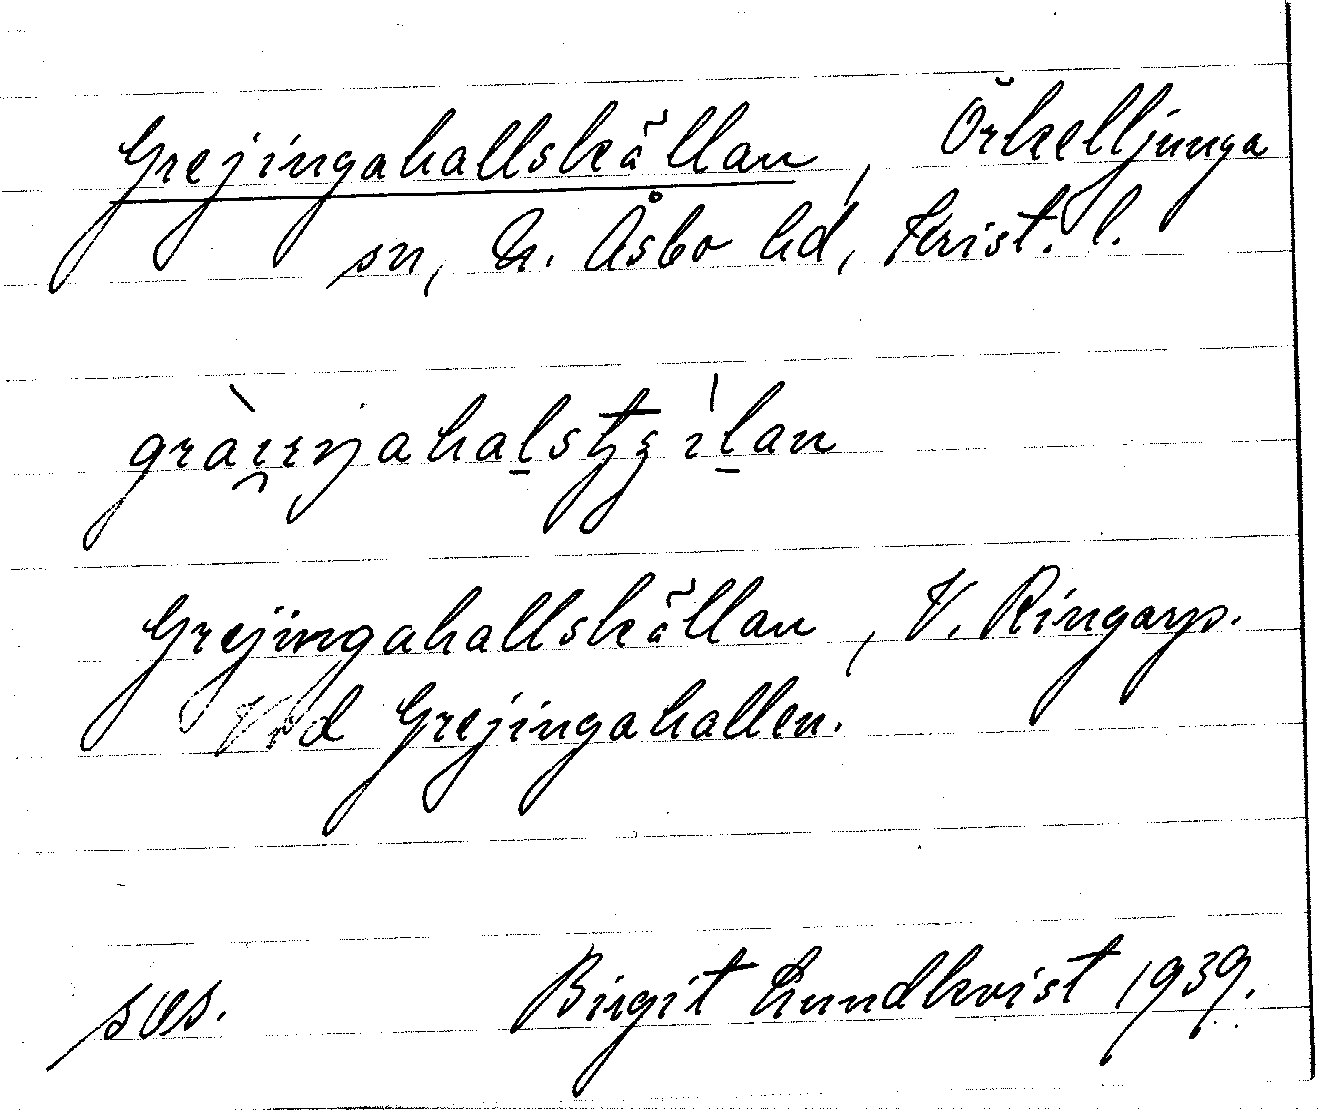 Grejingahallskällan, Örkelljunga
sn, N. Åsbo hd, Krist. l.
Grejingahallskällan, V. Ringarp.
Vid Grejingahallen.
Birgit Lundkvist 1939.